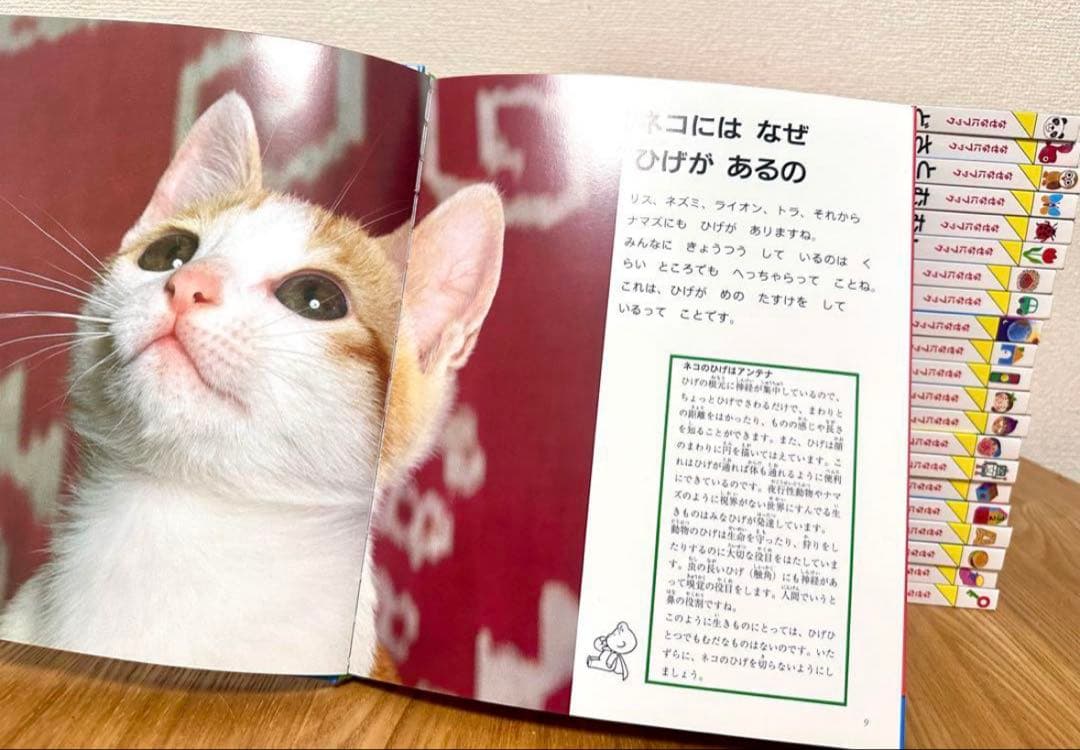 ネコには なぜ
ひげが あるの
リス、ネズミ、ライオン、トラ、それから
ナマズにも ひげが ありますね。
みんなに きょうつう して いるのは く
らい ところでも へっちゃらって ことね。
これは、ひげが めの たすけを して
いるって ことです。
ネコのひげはアンテナ
ひげの根元に神経が集中しているので、
ちょっとひげでさわるだけで、まわりと
の距離をはかったり、ものの感じや長さ
を知ることができます。また、ひげは顔
のまわりに円を描いてはえています。こ
れはひげが通れば体も通れるように便利
にできているのです。夜行性動物やナマ
ズのように視界がない世界にすんでる生
きものはみなひげが発達しています。
動物のひげは生命を守ったり、狩りをし
たりするのに大切な役目をはたしていま
す。虫の長いひげ（触角）にも神経があ
って嗅覚の役目をします。人間でいうと
鼻の役割ですね。
このように生きものにとっては、ひげひ
とつでもむだなものはないのです。いた
ずらに、ネコのひげを切らないようにし
ましょう。
9
なぜなにブック
なぜなにブック
なぜなにブック
なぜなにブック
なぜなにブック
なぜなにブック
なぜなにブック
なぜなにブック
なぜなにブック